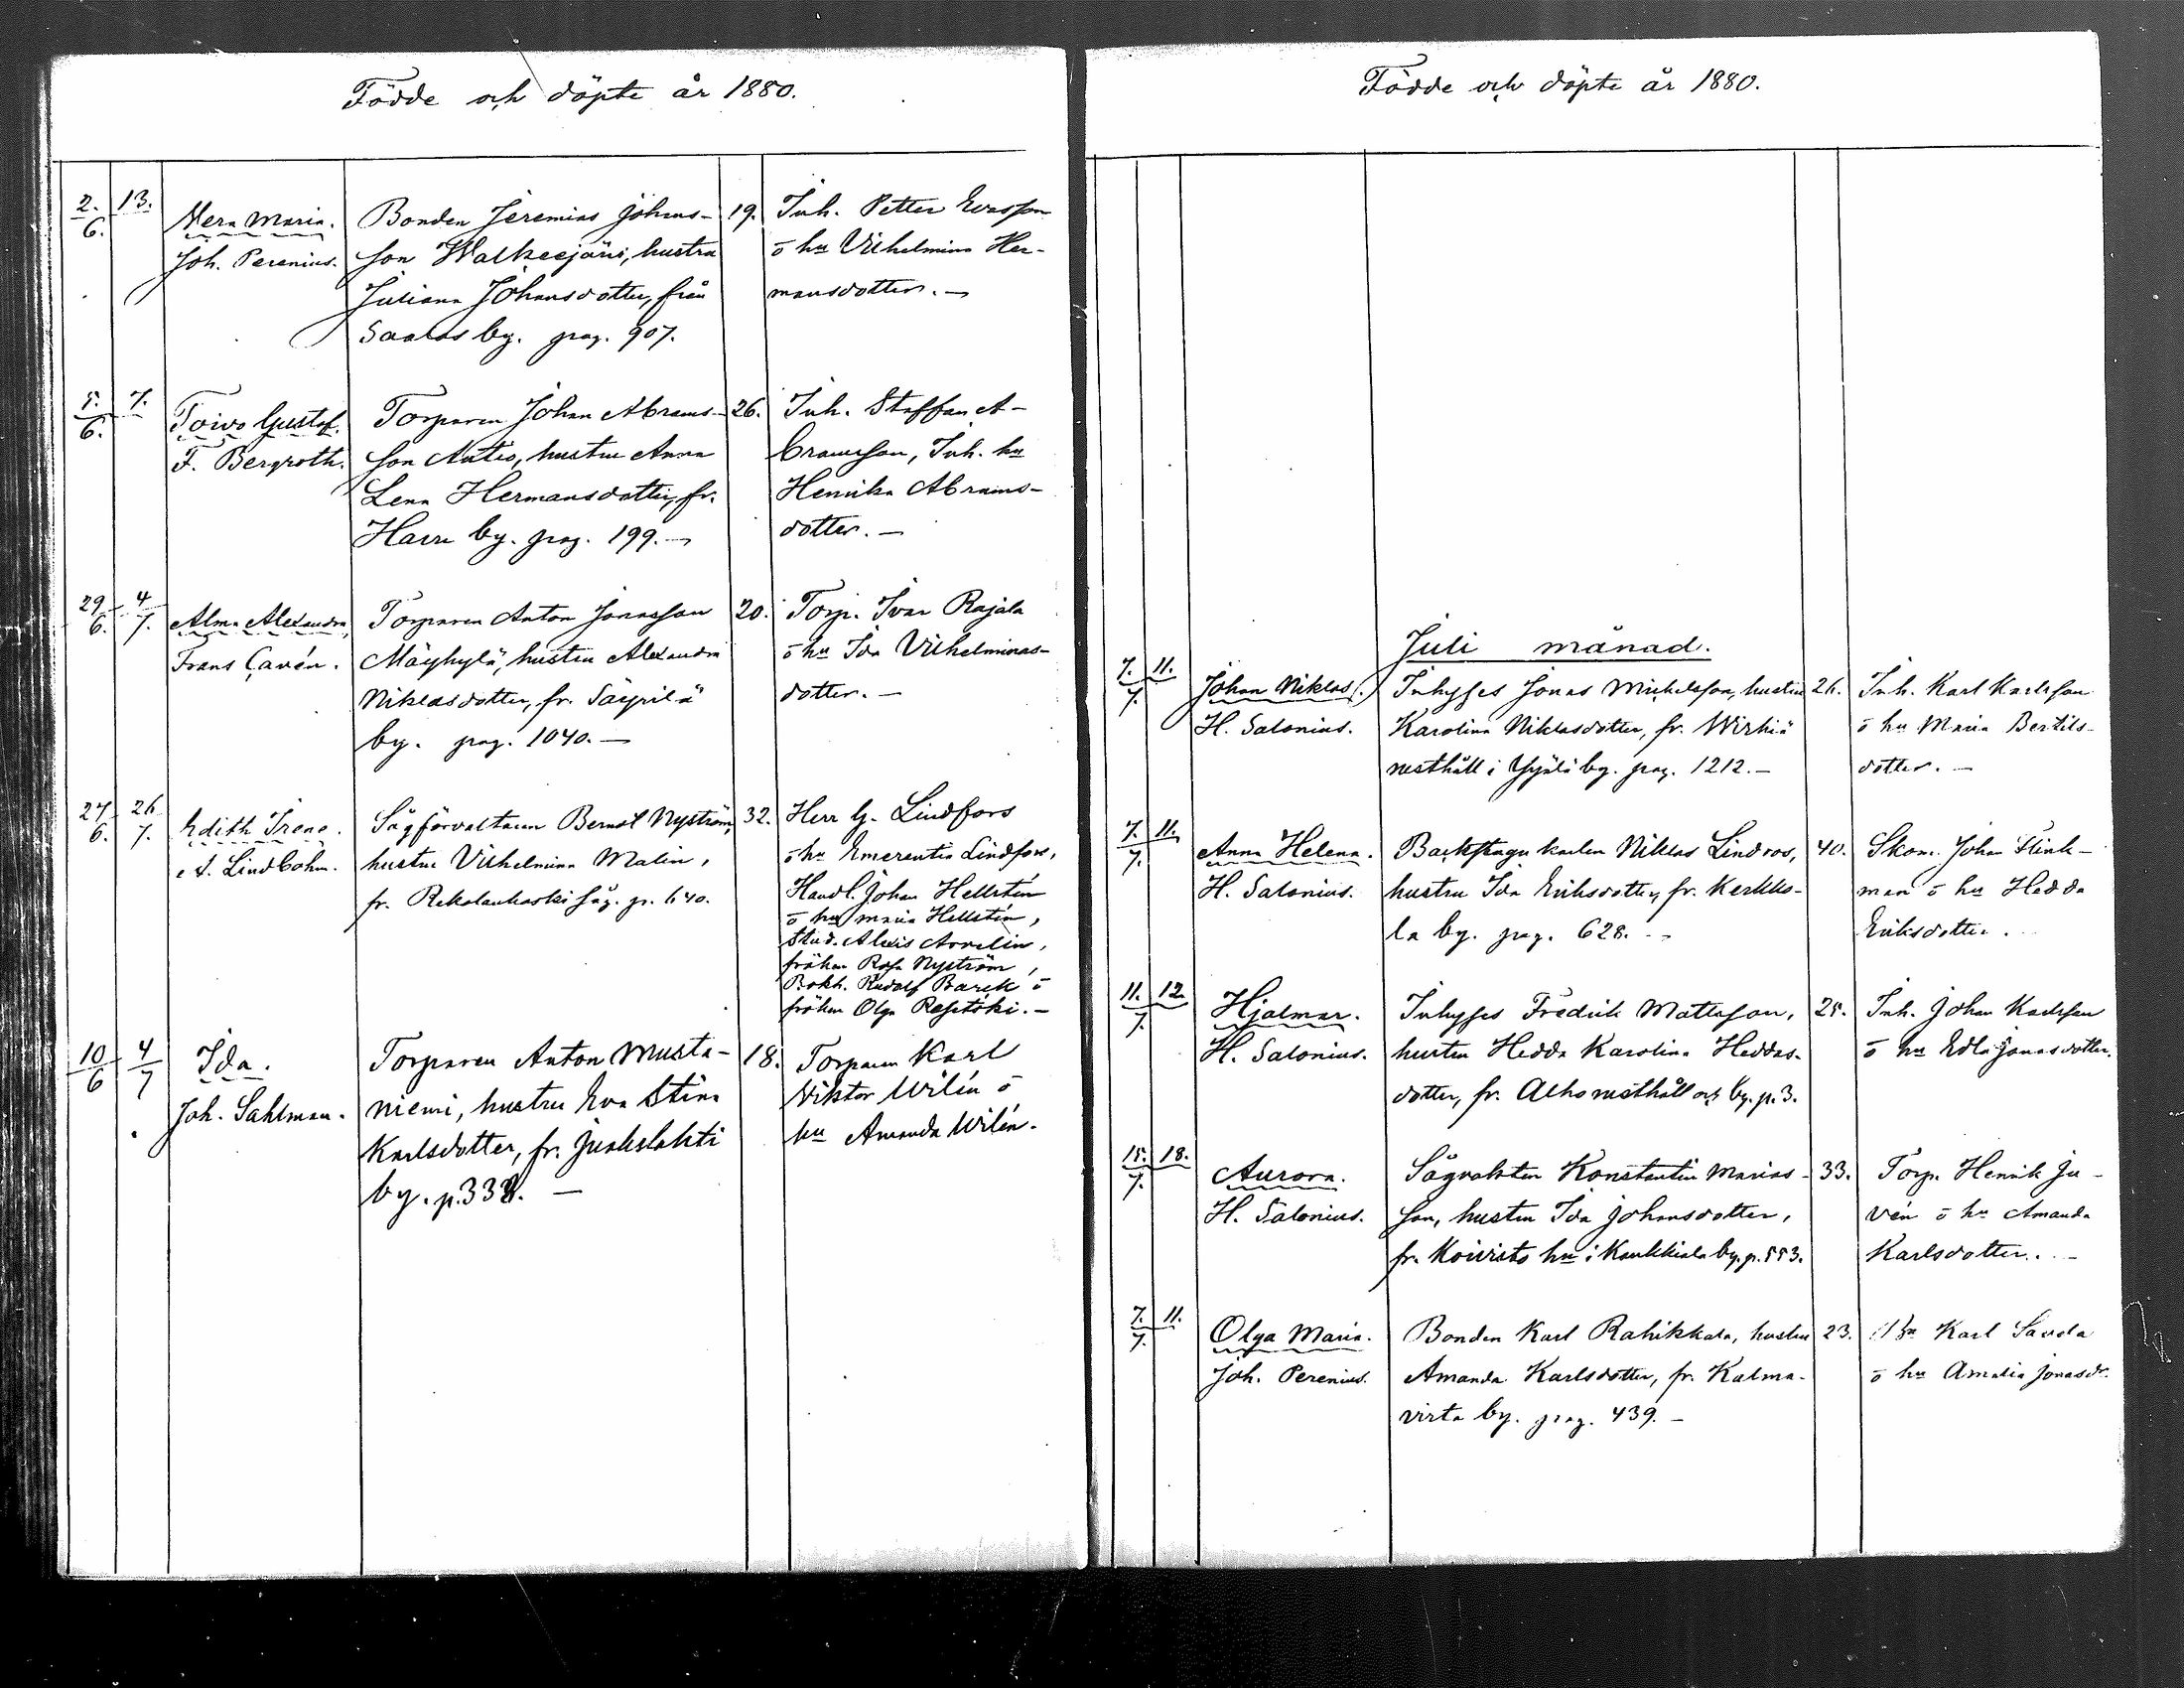 Födde och döpte år 1880.
2. 13. 19.
6.
Maria.
Joh. Perenius.
Bonden Jeremias Johans-
son Walkeejärvi, hustru
Juliana Johansdotter, från
Saalas by. pag. 907.
Inh. Petter Evasson
o hu Vilhelmina Her-
mansdotter. —
5. 7. 26.
6.
Toivo Gustaf.
F. Bergroth.
Torparen Johan Abrams-
son Antio, hustru Anna
Lena Hermansdotter, fr.
by. pag. 199. —
Inh. Staffan A-
bramsson, Inh. hu
Henrika Abrams-
dotter. —
29 4 20.
6. 7.
Alma Alexandra,
Frans Cavén.
Torparen Anton Jonasson
Mäyhylä, hustru Alexandra
Niklasdotter, fr. Säyrilä
by. pag. 1040. —
Torp. Ivar Rajala
o hu Ida Vilhelminas-
dotter. —
27 26 32.
6. 7.
Edith Irene.
Lindbohm.
Sågförvaltaren Bernat Nyström,
hustru Vilhelmina Malin,
fr. såg. p. 640.
Herr G. Lindfors
o hu Emerentia Lindfors,
Handl. Johan Hellstén
o hu Maria Hellstén,
Stud. Alexis Arvelin,
fröken Rosa Nyström,
Bokh. Rudolf Barck o
fröken Olga
10 4 18.
6 7
Ida.
Joh. Sahlman.
Torparen Anton Musta-
niemi, hustru Eva Stina
Karlsdotter, fr. Juakslahti
by. p. 338. —
Torparen Karl
Viktor Wilén o
hu Amanda Wilén.
Födde och döpte år 1880.
Juli månad.
7. 11. 26.
7.
Johan Niklas.
H. Salonius.
Inhyses Jonas Michelsson, hustru
Karolina Niklasdotter, fr. Wirhiä
rusthåll i by. pag. 1212. —
Inh. Karl Karlsson
o hu Maria Bertils-
dotter. —
7. 11. 40.
7.
Anna Helena.
H. Salonius.
Backstugu karlen Niklas Lindroos,
hustru Ida Eriksdotter, fr. Kerkko-
la by. pag. 628. —
Skom. Johan Flink-
man o hu Hedda
Eriksdotter.
11. 12. 25.
7.
Hjalmar.
H. Salonius.
Inhyses Fredrik Mattsson,
hustru Hedda Karolina Heddas-
dotter, fr. Alho rusthåll och by. p. 3.
Inh. Johan Karlsson
o hu Edla Jonasdotter.
15. 18. 33.
7.
Aurora.
H. Salonius.
Sågvakten Konstantin Marias-
son, hustru Ida Johansdotter,
fr. Koivisto hn i Kaukkiala by. p. 553.
Torp. Henrik Ju-
vén o hu Amanda
Karlsdotter. —
7. 11. 23.
7.
Olga Maria.
Joh. Perenius.
Bonden Karl Rahikkala, hustru
Amanda Karlsdotter, fr. Kalma-
virta by. pag. 439. —
Karl Savela
o hu Amalia Jonasdr.